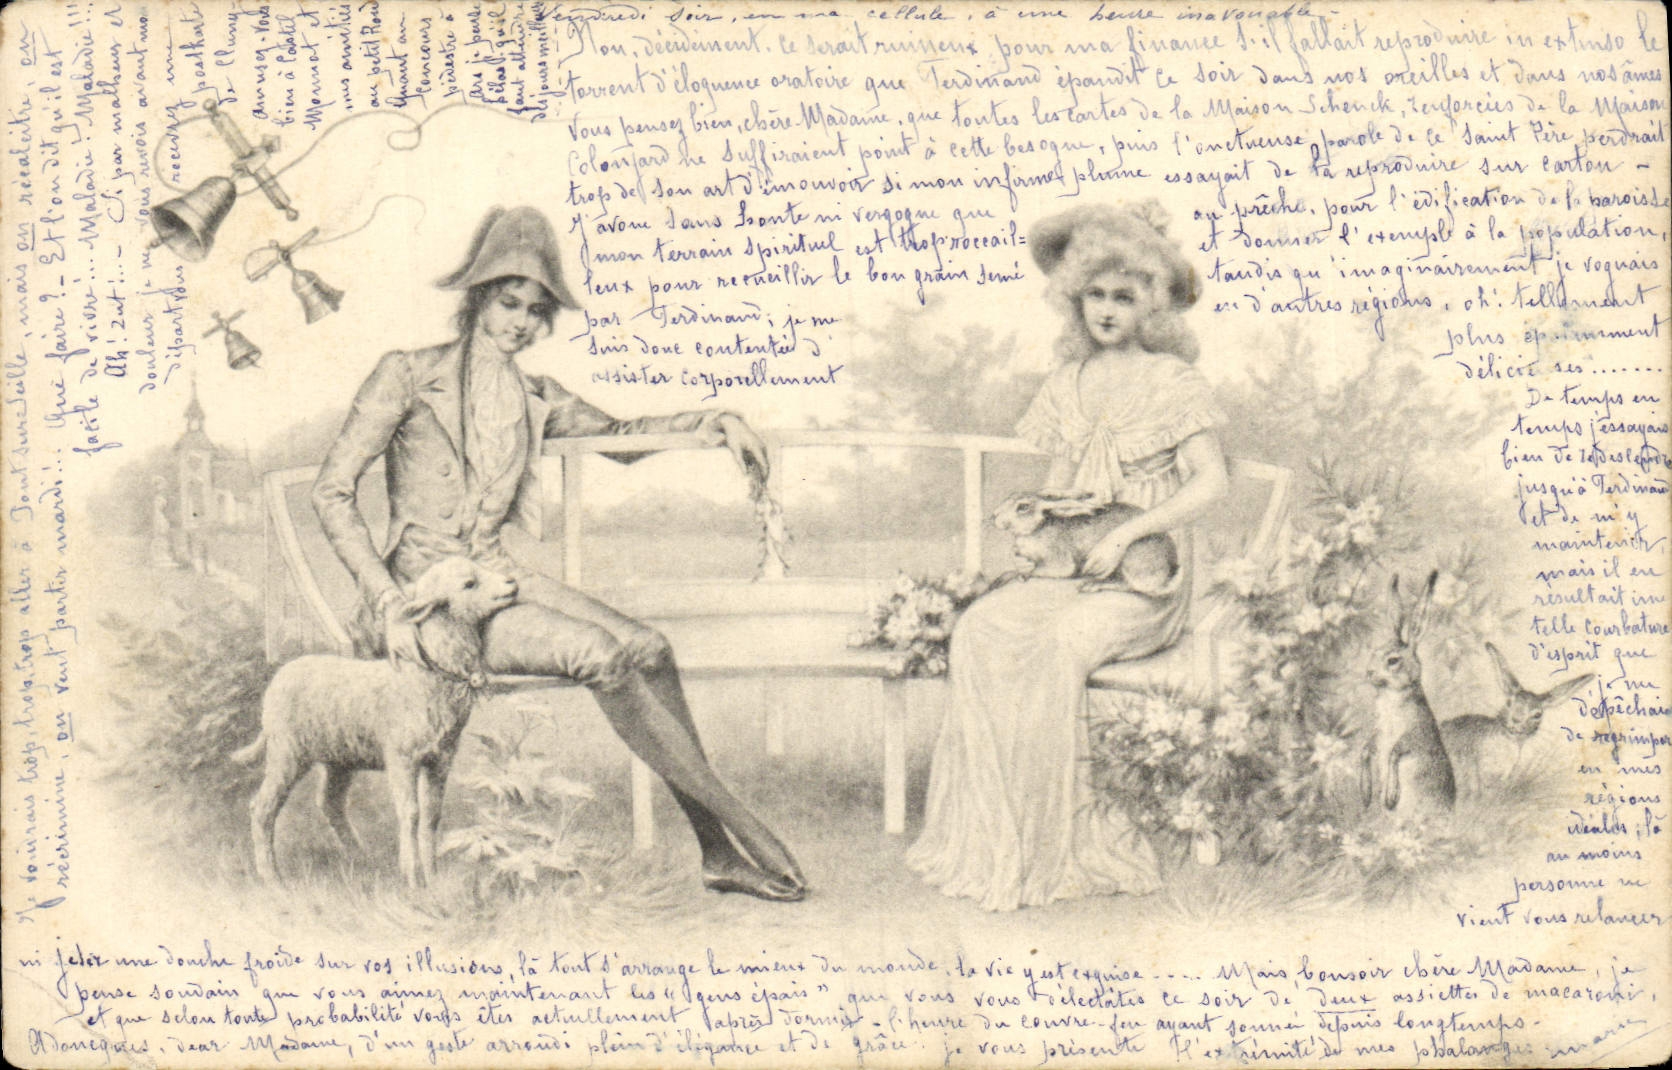 Vendredi soir, en ma cellule, à une heure inavouable -
Non, décidément, ce serait ruineux pour ma finance s'il fallait reproduire in extenso le
torrent d'éloquence oratoire que Ferdinand épandit ce soir dans nos oreilles et dans nos âmes
Vous pensez bien, chère Madame, que toutes les cartes de la Maison Schenck, renforcées de la Maison
ne suffiraient point à cette besogne, puis l'onctueuse parole de ce Saint Père perdrait
trop de son art d'émouvoir si mon infirme plume essayait de la reproduire sur carton -
J'avoue sans honte ni vergogne que
mon terrain spirituel est trop roccail=
leux pour recueillir le bon grain semé
par Ferdinand; je me
suis donc contentée d'
assister corporellement
au prêche, pour l'édification de la paroisse
et donner l'exemple à la population,
tandis qu'imaginairement je voguais
en d'autres régions, oh! tellement
plus
.......
De temps en
temps j'essayais
bien de redescendre
jusqu'à Ferdinand
et de m'y
maintenir,
mais il en
résultait une
telle courbature
d'esprit que
je me
dépêchais
de regrimper
en mes
régions
idéales; là
au moins
personne ne
vient vous relancer
ni jeter une douche froide sur vos illusions, là tout s'arrange le mieux du monde, la vie y est exquise ..... Mais, bonsoir chère Madame, je
pense soudain que vous aimez maintenant les "gens épais" que vous vous délectâtes ce soir de deux assiettes de macaroni,
et que selon toute probabilité vous êtes actuellement après dormir - l'heure du couvre-feu ayant sonné depuis longtemps -
Adoncques, dear Madame, d'un geste arrondi plein d'élégance et de grâce je vous présente l'extrémité de mes phalanges - Marie
Je voudrais trop, trop, trop aller à Tout sur Seille, mais on récalcitre, on
récrimine, on veut partir mardi!... Que faire? - Et l'on dit qu'il est
facile de vivre!... Maladie! Maladie!!!
Ah! zut!.. - Si par malheur et
douleur je ne vous revois avant mon
départ vous
recevrez une
postkarte
de Cluny -
Amusez-vous
bien à Castel
Monnot et
mes amitiés
au petit Rou
Quant au
concours
pédestre
je pense
qu'il
faut attendre
des jours meilleurs